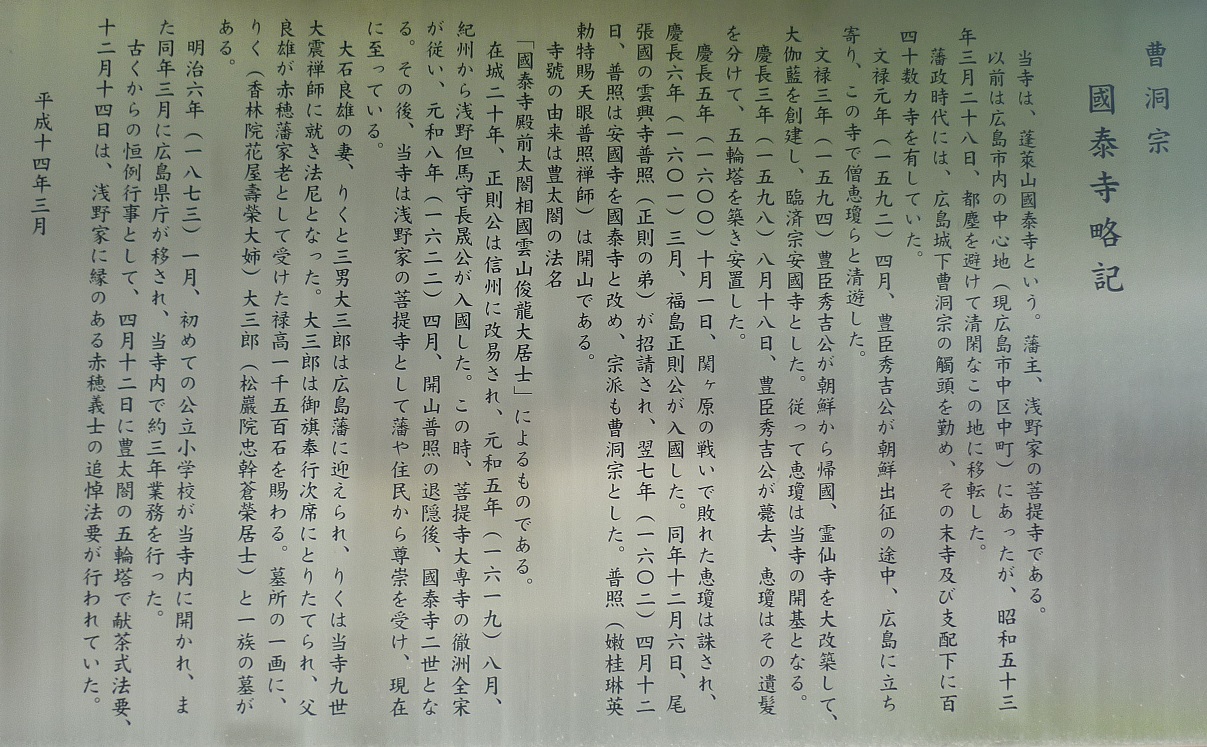 曹洞宗
國泰寺略記
当寺は、蓬萊山國泰寺という。藩主、浅野家の菩提寺である。
以前は広島市内の中心地（現広島市中区中町）にあったが、昭和五十三
年三月二十八日、都塵を避けて清閑なこの地に移転した。
藩政時代には、広島城下曹洞宗の觸頭を勤め、その末寺及び支配下に百
四十数カ寺を有していた。
文禄元年（一五九二）四月、豊臣秀吉公が朝鮮出征の途中、広島に立ち
寄り、この寺で僧恵瓊らと清遊した。
文禄三年（一五九四）豊臣秀吉公が朝鮮から帰國、霊仙寺を大改築して、
大伽藍を創建し、臨済宗安國寺とした。従って恵瓊は当寺の開基となる。
慶長三年（一五九八）八月十八日、豊臣秀吉公が薨去、恵瓊はその遺髪
を分けて、五輪塔を築き安置した。
慶長五年（一六〇〇）十月一日、関ヶ原の戦いで敗れた恵瓊は誅され、
慶長六年（一六〇一）三月、福島正則公が入國した。同年十二月六日、尾
張國の雲興寺普照（正則の弟）が招請され、翌七年（一六〇二）四月十二
日、普照は安國寺を國泰寺と改め、宗派も曹洞宗とした。普照（嫩桂琳英
勅特賜天眼普照禅師）は開山である。
寺號の由来は豊太閤の法名
「國泰寺殿前太閤相國雲山俊龍大居士」によるものである。
在城二十年、正則公は信州に改易され、元和五年（一六一九）八月、
紀州から浅野但馬守長晟公が入國した。この時、菩提寺大専寺の徹洲全宋
が従い、元和八年（一六二二）四月、開山普照の退隠後、國泰寺二世とな
る。その後、当寺は浅野家の菩提寺として藩や住民から尊崇を受け、現在
に至っている。
大石良雄の妻、りくと三男大三郎は広島藩に迎えられ、りくは当寺九世
大震禅師に就き法尼となった。大三郎は御旗奉行次席にとりたてられ、父
良雄が赤穂藩家老として受けた禄高一千五百石を賜わる。墓所の一画に、
りく（香林院花屋壽榮大姉）大三郎（松巖院忠幹蒼榮居士）と一族の墓が
ある。
明治六年（一八七三）一月、初めての公立小学校が当寺内に開かれ、ま
た同年三月に広島県庁が移され、当寺内で約三年業務を行った。
古くからの恒例行事として、四月十二日に豊太閤の五輪塔で献茶式法要、
十二月十四日は、浅野家に縁のある赤穂義士の追悼法要が行われていた。
平成十四年三月